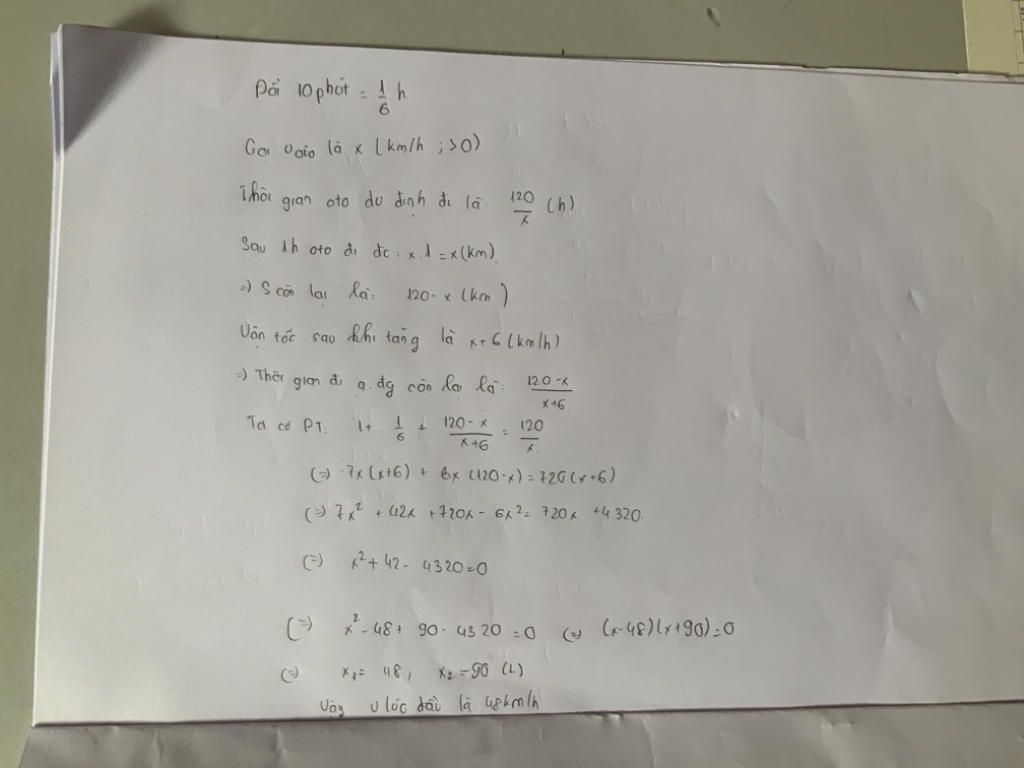 Đổi 10 phút = 1/6 h
Gọi v oto là x (km/h ; >0)
Thời gian oto dự định đi là 120/x (h)
Sau 1h oto đi đc: x.1 = x(km).
=) S còn lại là: 120-x (km)
Vận tốc sau khi tăng là x+6 (km/h)
=) Thời gian đi q.đg còn lại là: 120-x/x+6
Ta có PT: 1+ 1/6 + 120-x/x+6 = 120/x
(=) 7x(x+6) + 6x(120-x) = 720(x+6)
(=) 7x² + 42x + 720x - 6x² = 720x + 4320.
(=) x² + 42 - 4320 = 0
(=) x² - 48 + 90 - 4320 = 0 (=) (x-48)(x+90)=0
(=) x₁ = 48, x₂ = -90 (L)
Vậy v lúc đầu là 48km/h